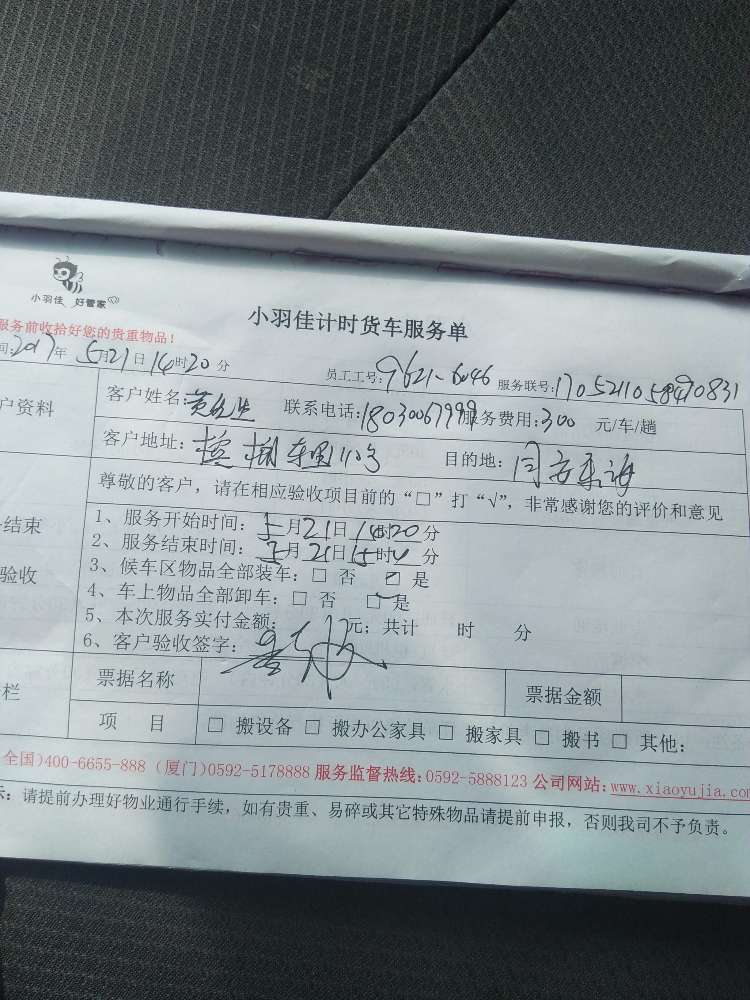 小羽佳 好管家
小羽佳计时货车服务单
服务前收拾好您的贵重物品！
间：2017年 5月21日14时20分
员工工号：9621-6046 服务联号：1705211058490831
户资料
客户姓名：黄先生 联系电话：18030067999 服务费用：300 元/车/趟
客户地址： 110号 目的地：同安
尊敬的客户，请在相应验收项目前的“□”打“√”，非常感谢您的评价和意见
结束
验收
1、服务开始时间：5月21日14时20分
2、服务结束时间：5月21日15时 分
3、候车区物品全部装车：□ 否 □ 是
4、车上物品全部卸车：□ 否 □ 是
5、本次服务实付金额： 元；共计 时 分
6、客户验收签字：
栏
票据名称 票据金额
项 目 □ 搬设备 □ 搬办公家具 □ 搬家具 □ 搬书 □ 其他：
全国)400-6655-888 (厦门)0592-5178888 服务监督热线：0592-5888123 公司网站：www.xiaoyujia.com
示：请提前办理好物业通行手续，如有贵重、易碎或其它特殊物品请提前申报，否则我司不予负责。